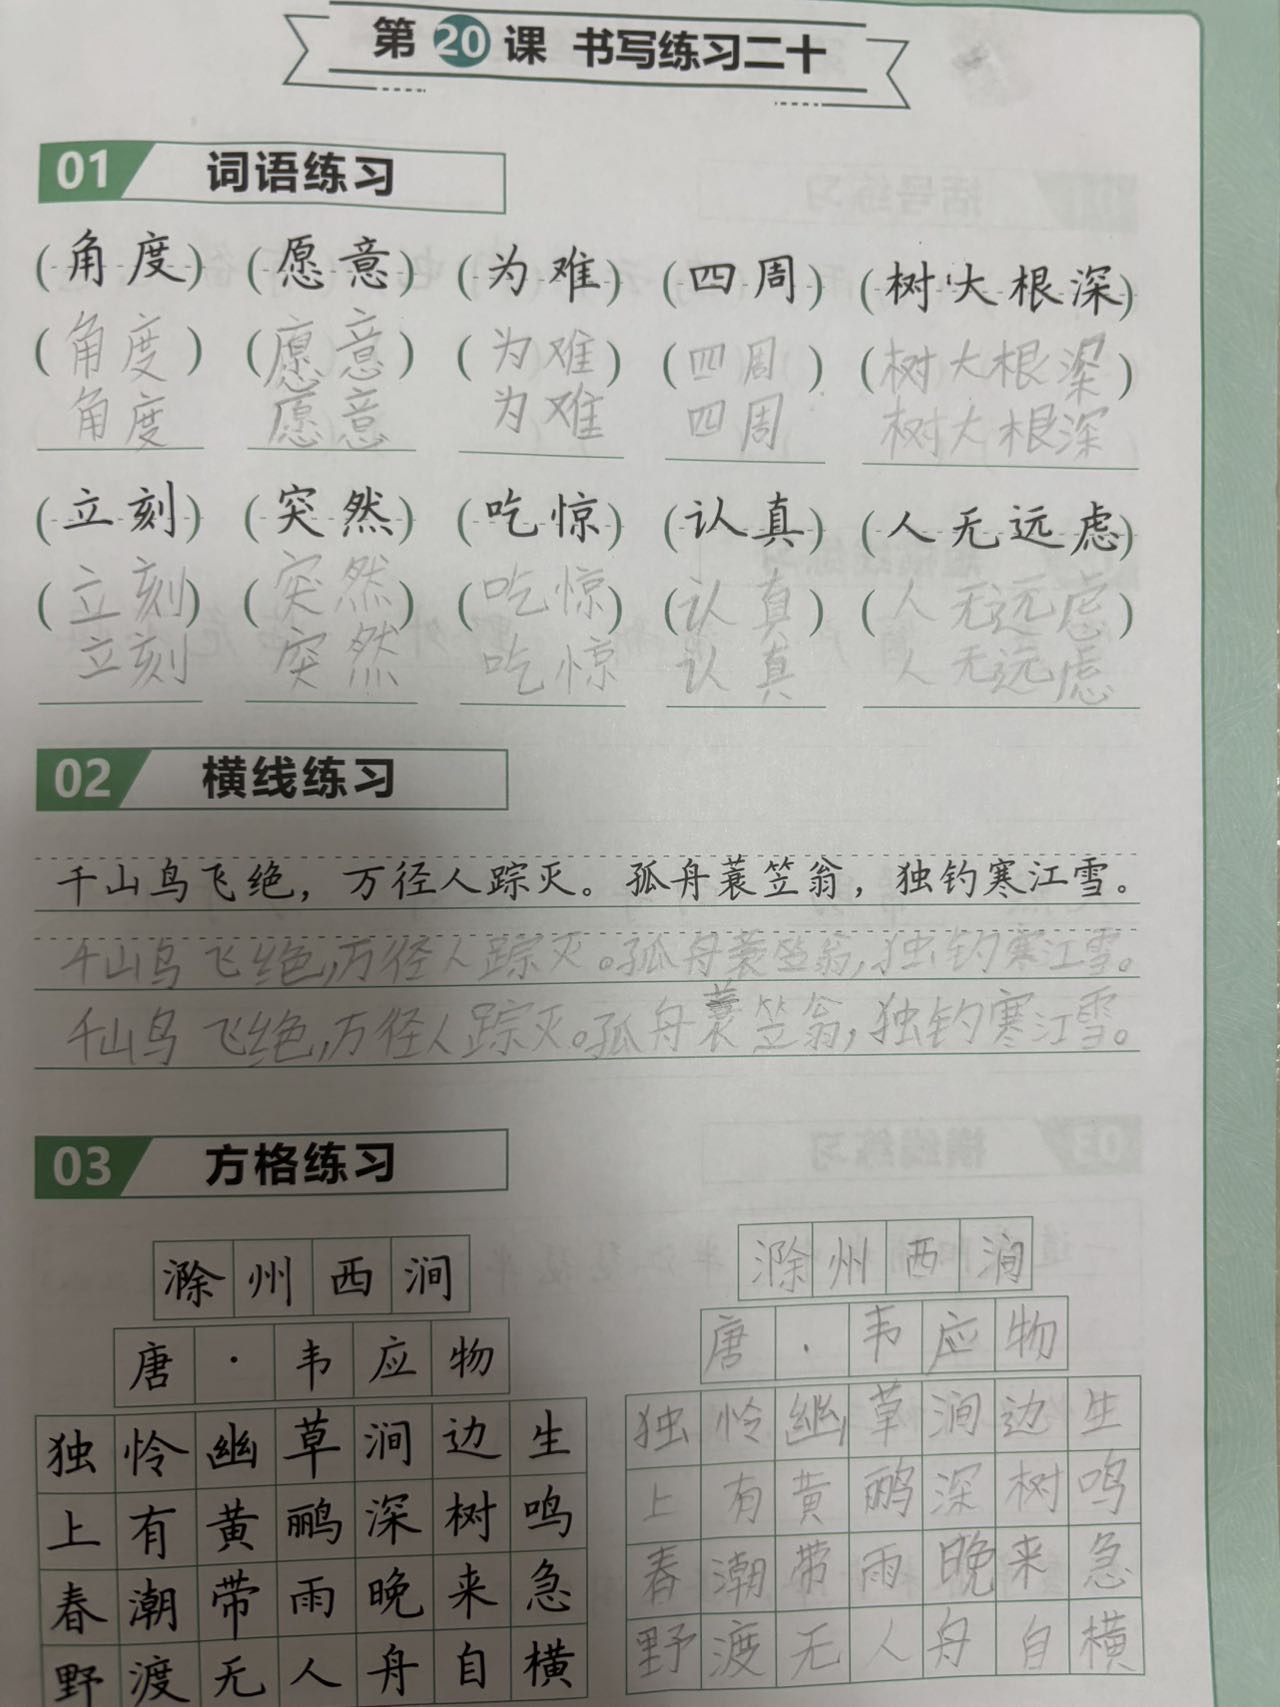 第20课 书写练习二十
01 词语练习
(角度) (愿意) (为难) (四周) (树大根深)
(角度) (愿意) (为难) (四周) (树大根深)
角度 愿意 为难 四周 树大根深
(立刻) (突然) (吃惊) (认真) (人无远虑)
(立刻) (突然) (吃惊) (认真) (人无远虑)
立刻 突然 吃惊 认真 人无远虑
02 横线练习
千山鸟飞绝，万径人踪灭。孤舟蓑笠翁，独钓寒江雪。
千山鸟飞绝,万径人踪灭。孤舟蓑笠翁,独钓寒江雪。
千山鸟飞绝,万径人踪灭。孤舟蓑笠翁,独钓寒江雪。
03 方格练习
滁州西涧
唐·韦应物
独怜幽草涧边生
上有黄鹂深树鸣
春潮带雨晚来急
野渡无人舟自横
滁州西涧
唐·韦应物
独怜幽草涧边生
上有黄鹂深树鸣
春潮带雨晚来急
野渡无人舟自横